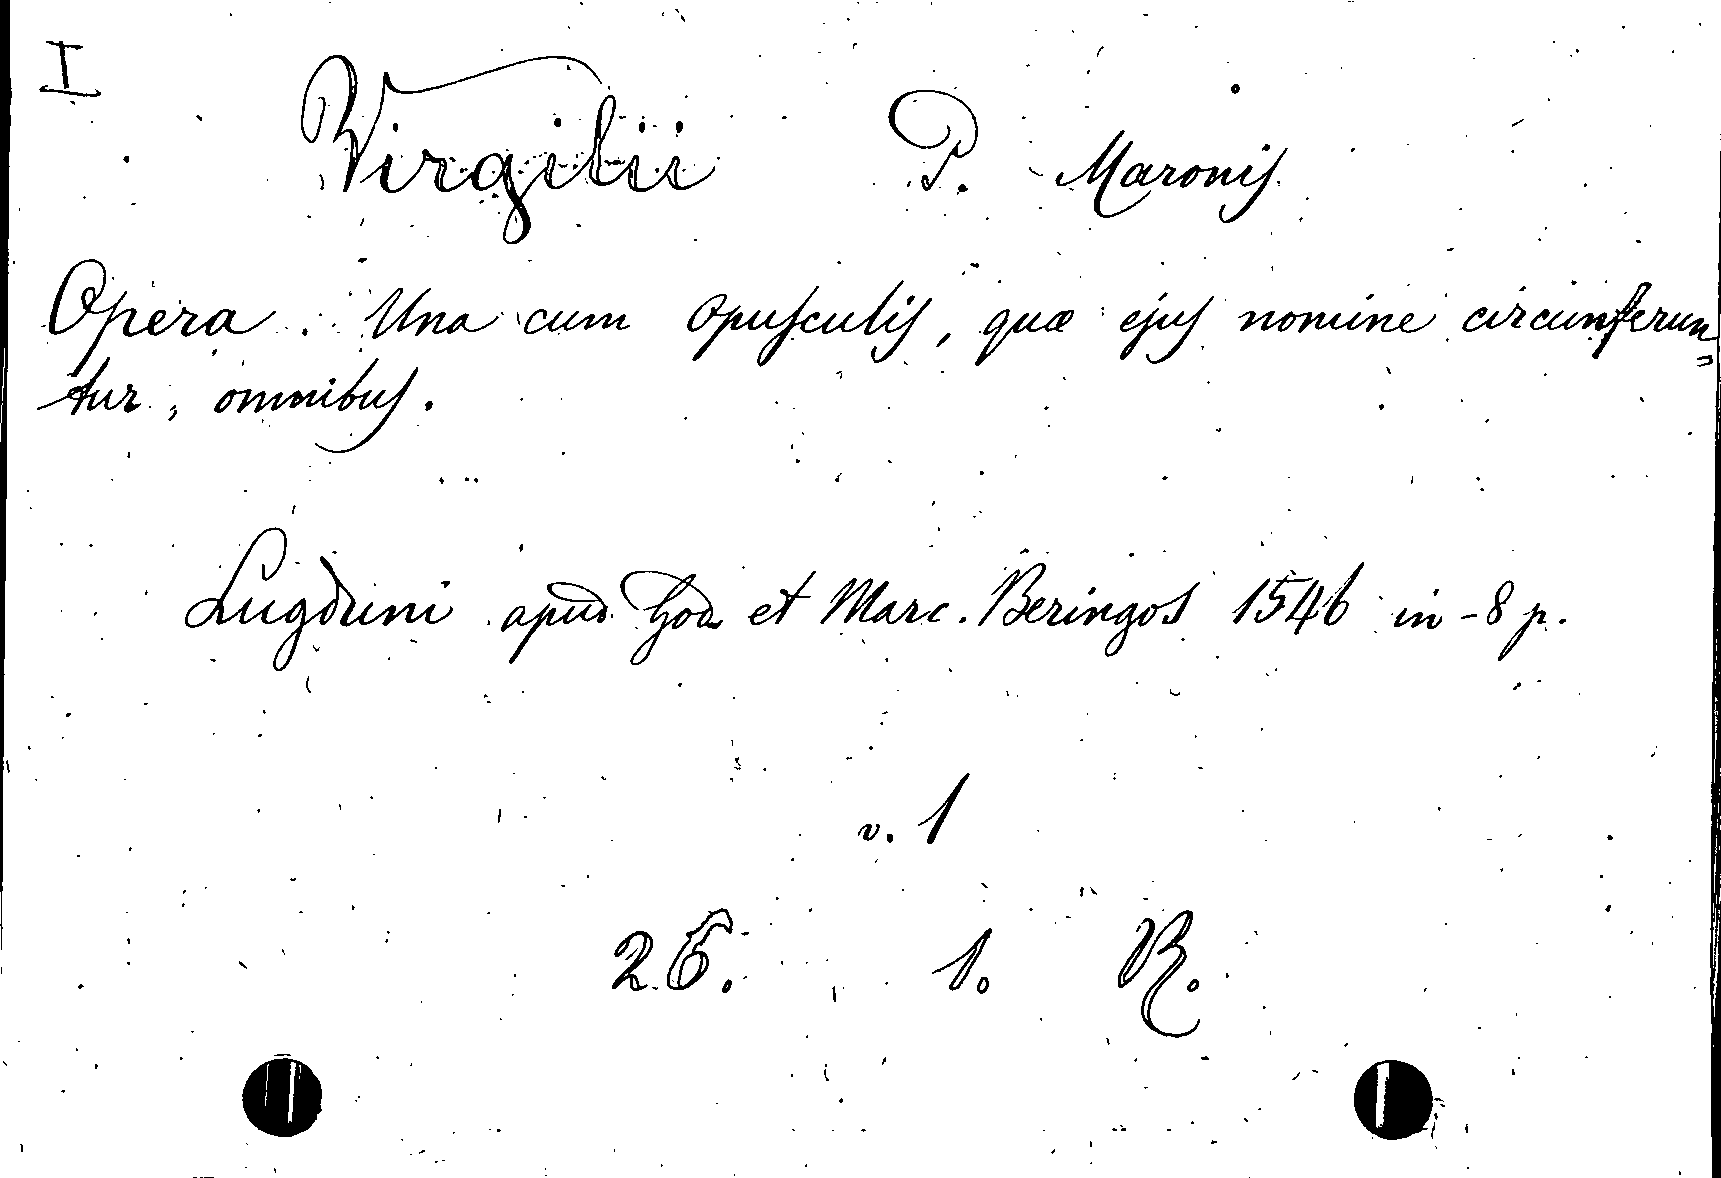 I
Virgilii P. Maronis
Opera. Una cum opusculis, quæ ejus nomine circunferun„
tur, omnibus.
Lugduni apud God et Marc. Beringos 1546 in-8 p.
v. 1
26. 1. R.